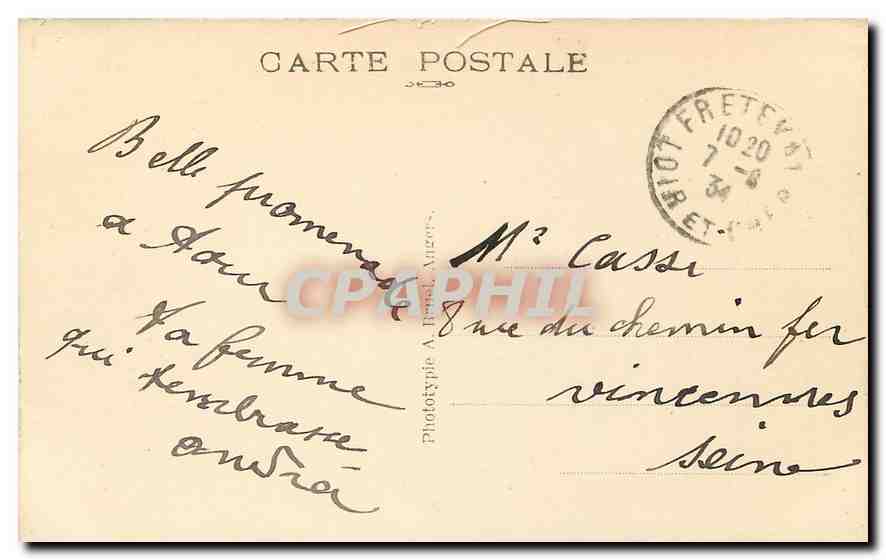 CARTE POSTALE
Belle promenade
a Tour
Ta femme
qui tembrasse
andréa
Phototypie A. Bruel, Angers.
Mr Cassi
8 rue du chemin fer
vincennes
seine
FRETEVAL
10 20
7 -8
34
CPAPHIL